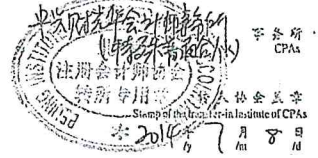 中兴财光华会计师事务所
(特殊普通合伙)
事务所
CPAs
注册会计师协会
转所专用章
转入协会盖章
Stamp of the transfer-in Institute of CPAs
2014年 7月 8日
/y /m /d